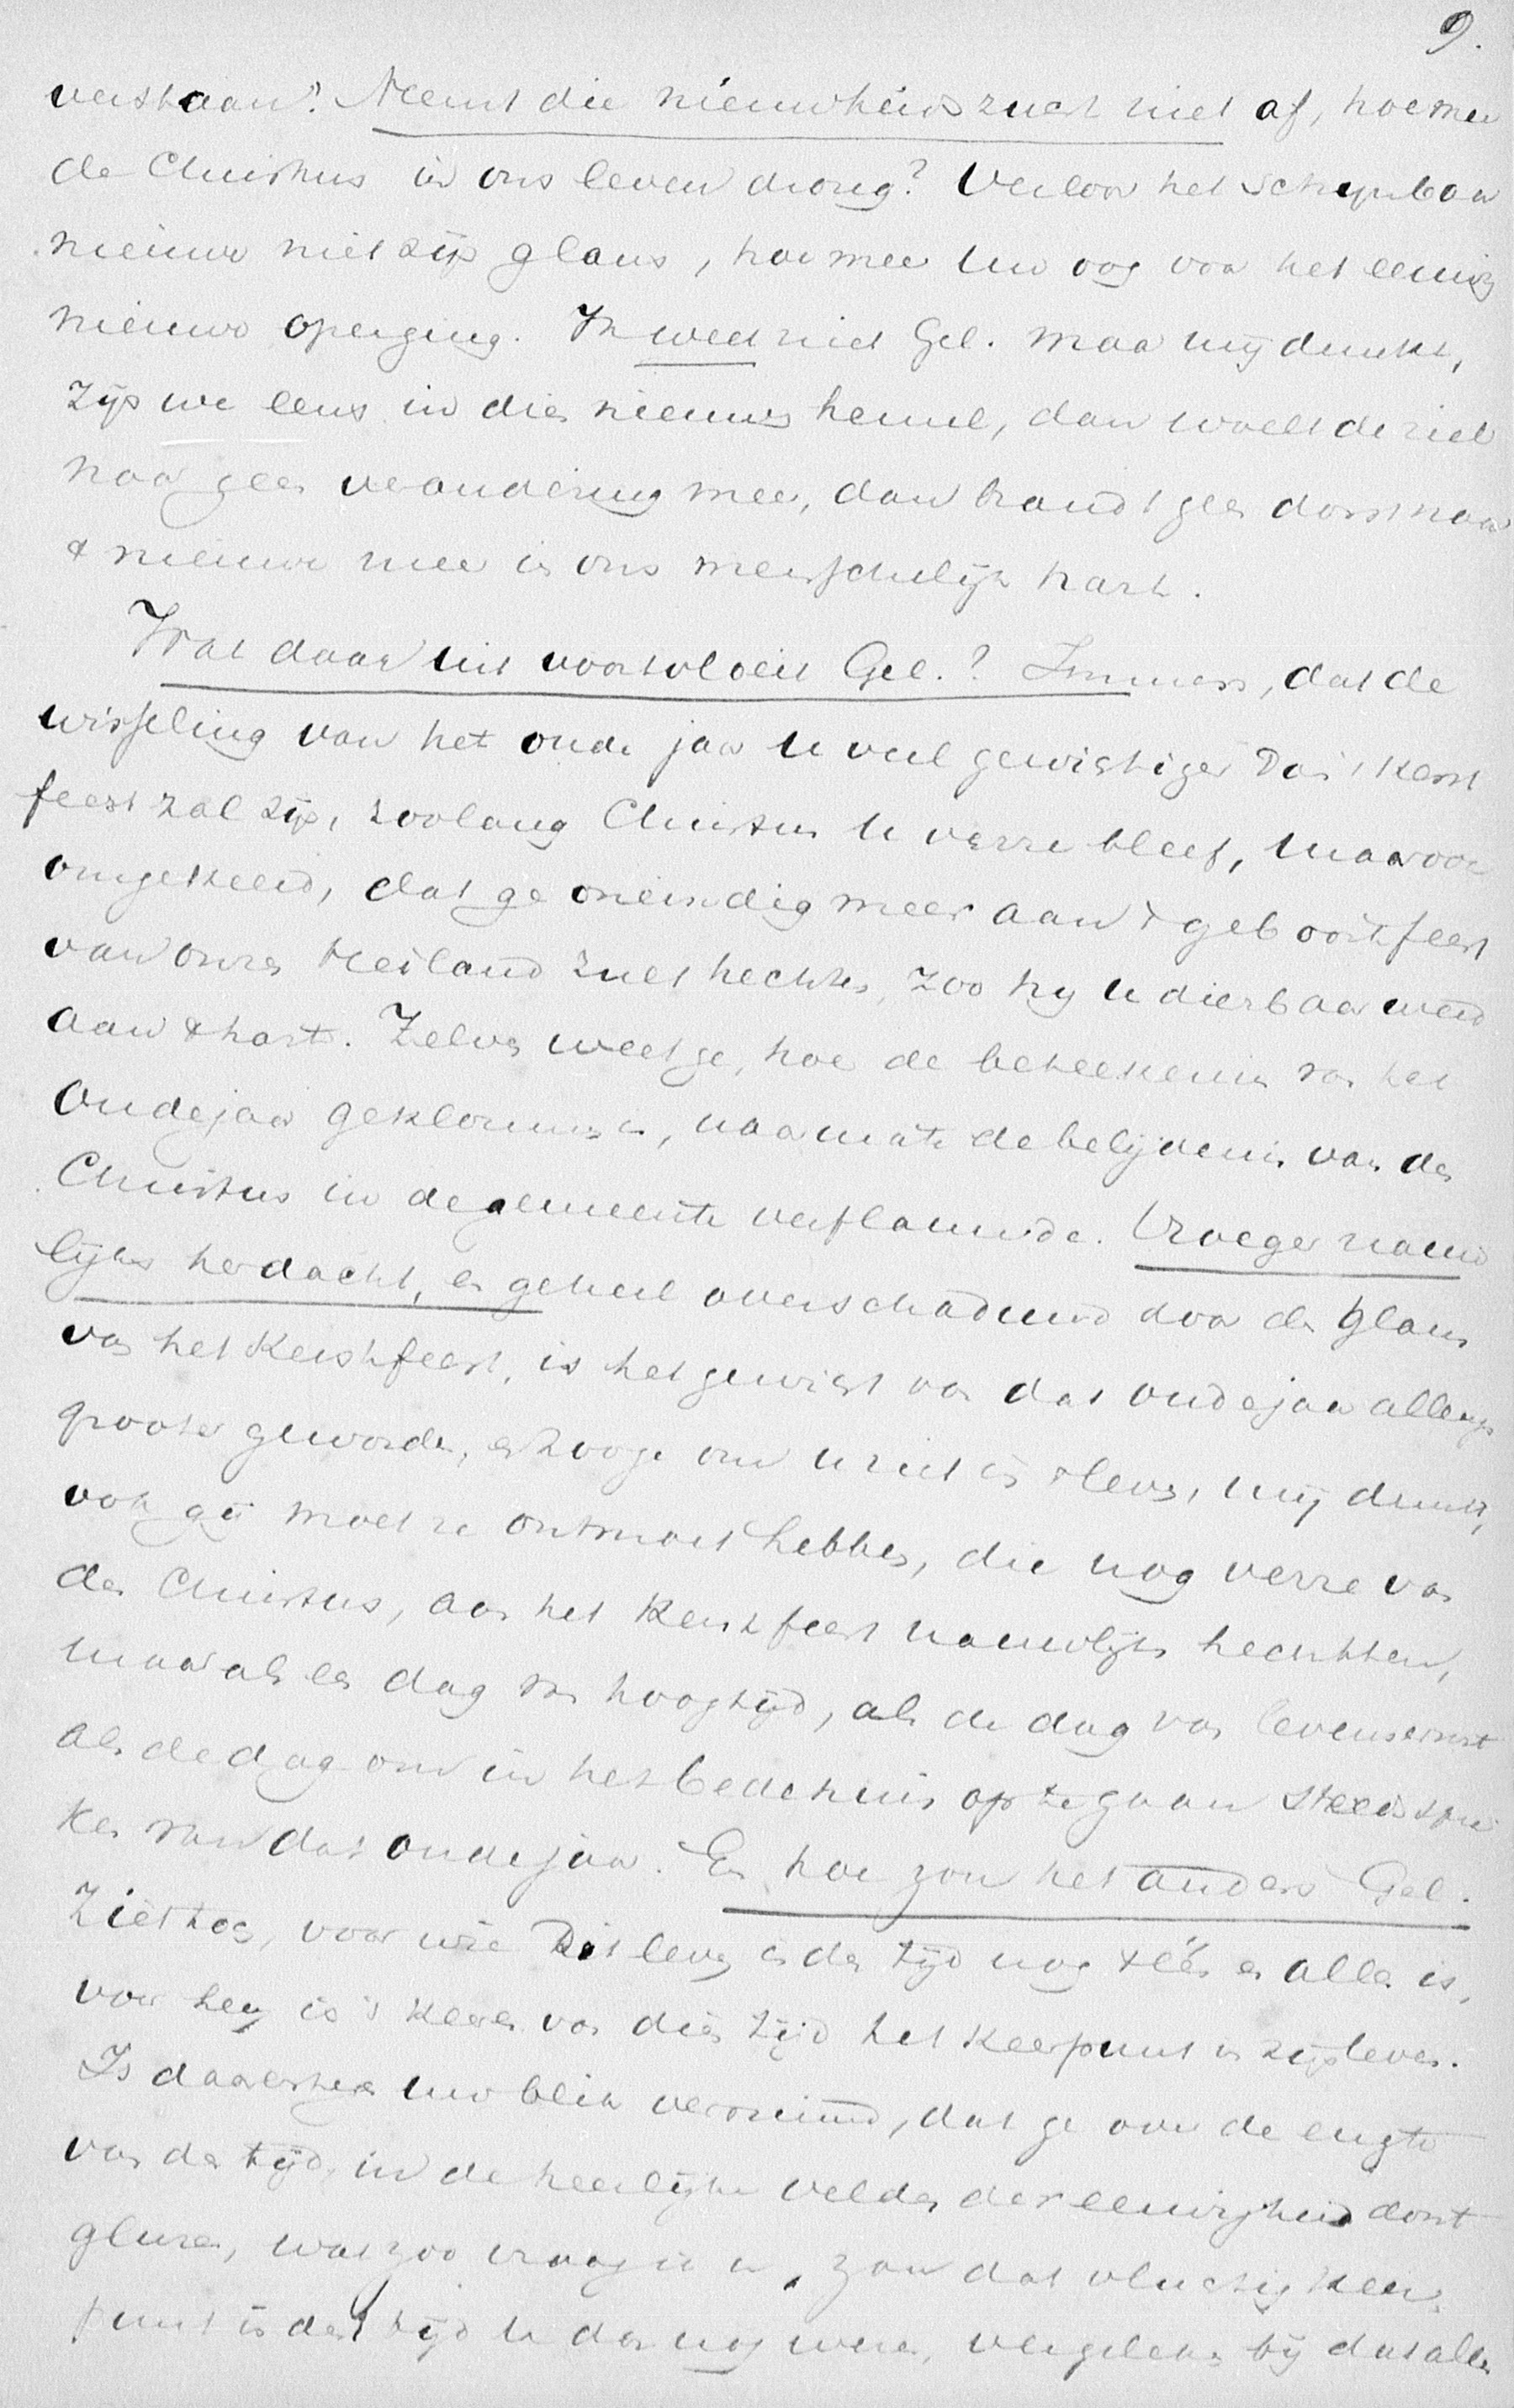 9.
verstaan? Neemt die nieuwheidszucht niet af, hoe meer
de Christus in ons leven drong? Verloor het schijnbaar
nieuwe niet zijn glans, hoe meer uw oog voor het eeuwig
nieuwe openging. Ik weet niet Gel. maar mij dunkt,
zijn we eens in dien nieuwen hemel, dan woelt de ziel
naar geen verandering meer, dan brandt geen dorst naar
't nieuwe meer in ons menschelijk hart.
Wat daar uit voortvloeit Gel.? Immers, dat de
wisseling van het oude jaar u veel gewichtiger dan 't Kerst
feest zal zijn, zoolang Christus u verre bleef, maar ook
omgekeerd, dat ge oneindig meer aan 't geboortefeest
van onzen Heiland zult hechten, zoo hij u dierbaar werd
aan 't hart. Zelven weet ge, hoe de beteekenis van het
oudejaar geklommen is, naarmate de belijdenis van den
Christus in de gemeente verflauwde. Vroeger nauw
lijks herdacht, en geheel overschaduwd door den glans
van het Kerstfeest, is het gewicht van dat oudejaar allengs
grooter geworden, en zooge om u ziet in 't leven, mij dunkt,
ook gij moet ze ontmoet hebben, die nog verre van
den Christus, aan het Kerstfeest nauwlijks hechtten,
maar als een dag van hoogtijd, als de dag van levensernst
als de dag om in het bedehuis op te gaan steeds spre
ken van dat oude jaar. En hoe zou het anders Gel.
Ziet toe, voor wie dit leven in den tijd nog 't één en alles is,
voor hen is 't keeren van dien tijd het keerpunt in zijn leven.
Is daarentegen uw blik verruimd, dat ge over de engte
van den tijd, in de heerlijke velden der eeuwigheid dorst
gluren, wat zoo vraag ik u, zou dat vluchtig keer
punt in den tijd u dan nog wezen, vergeleken bij dat alles